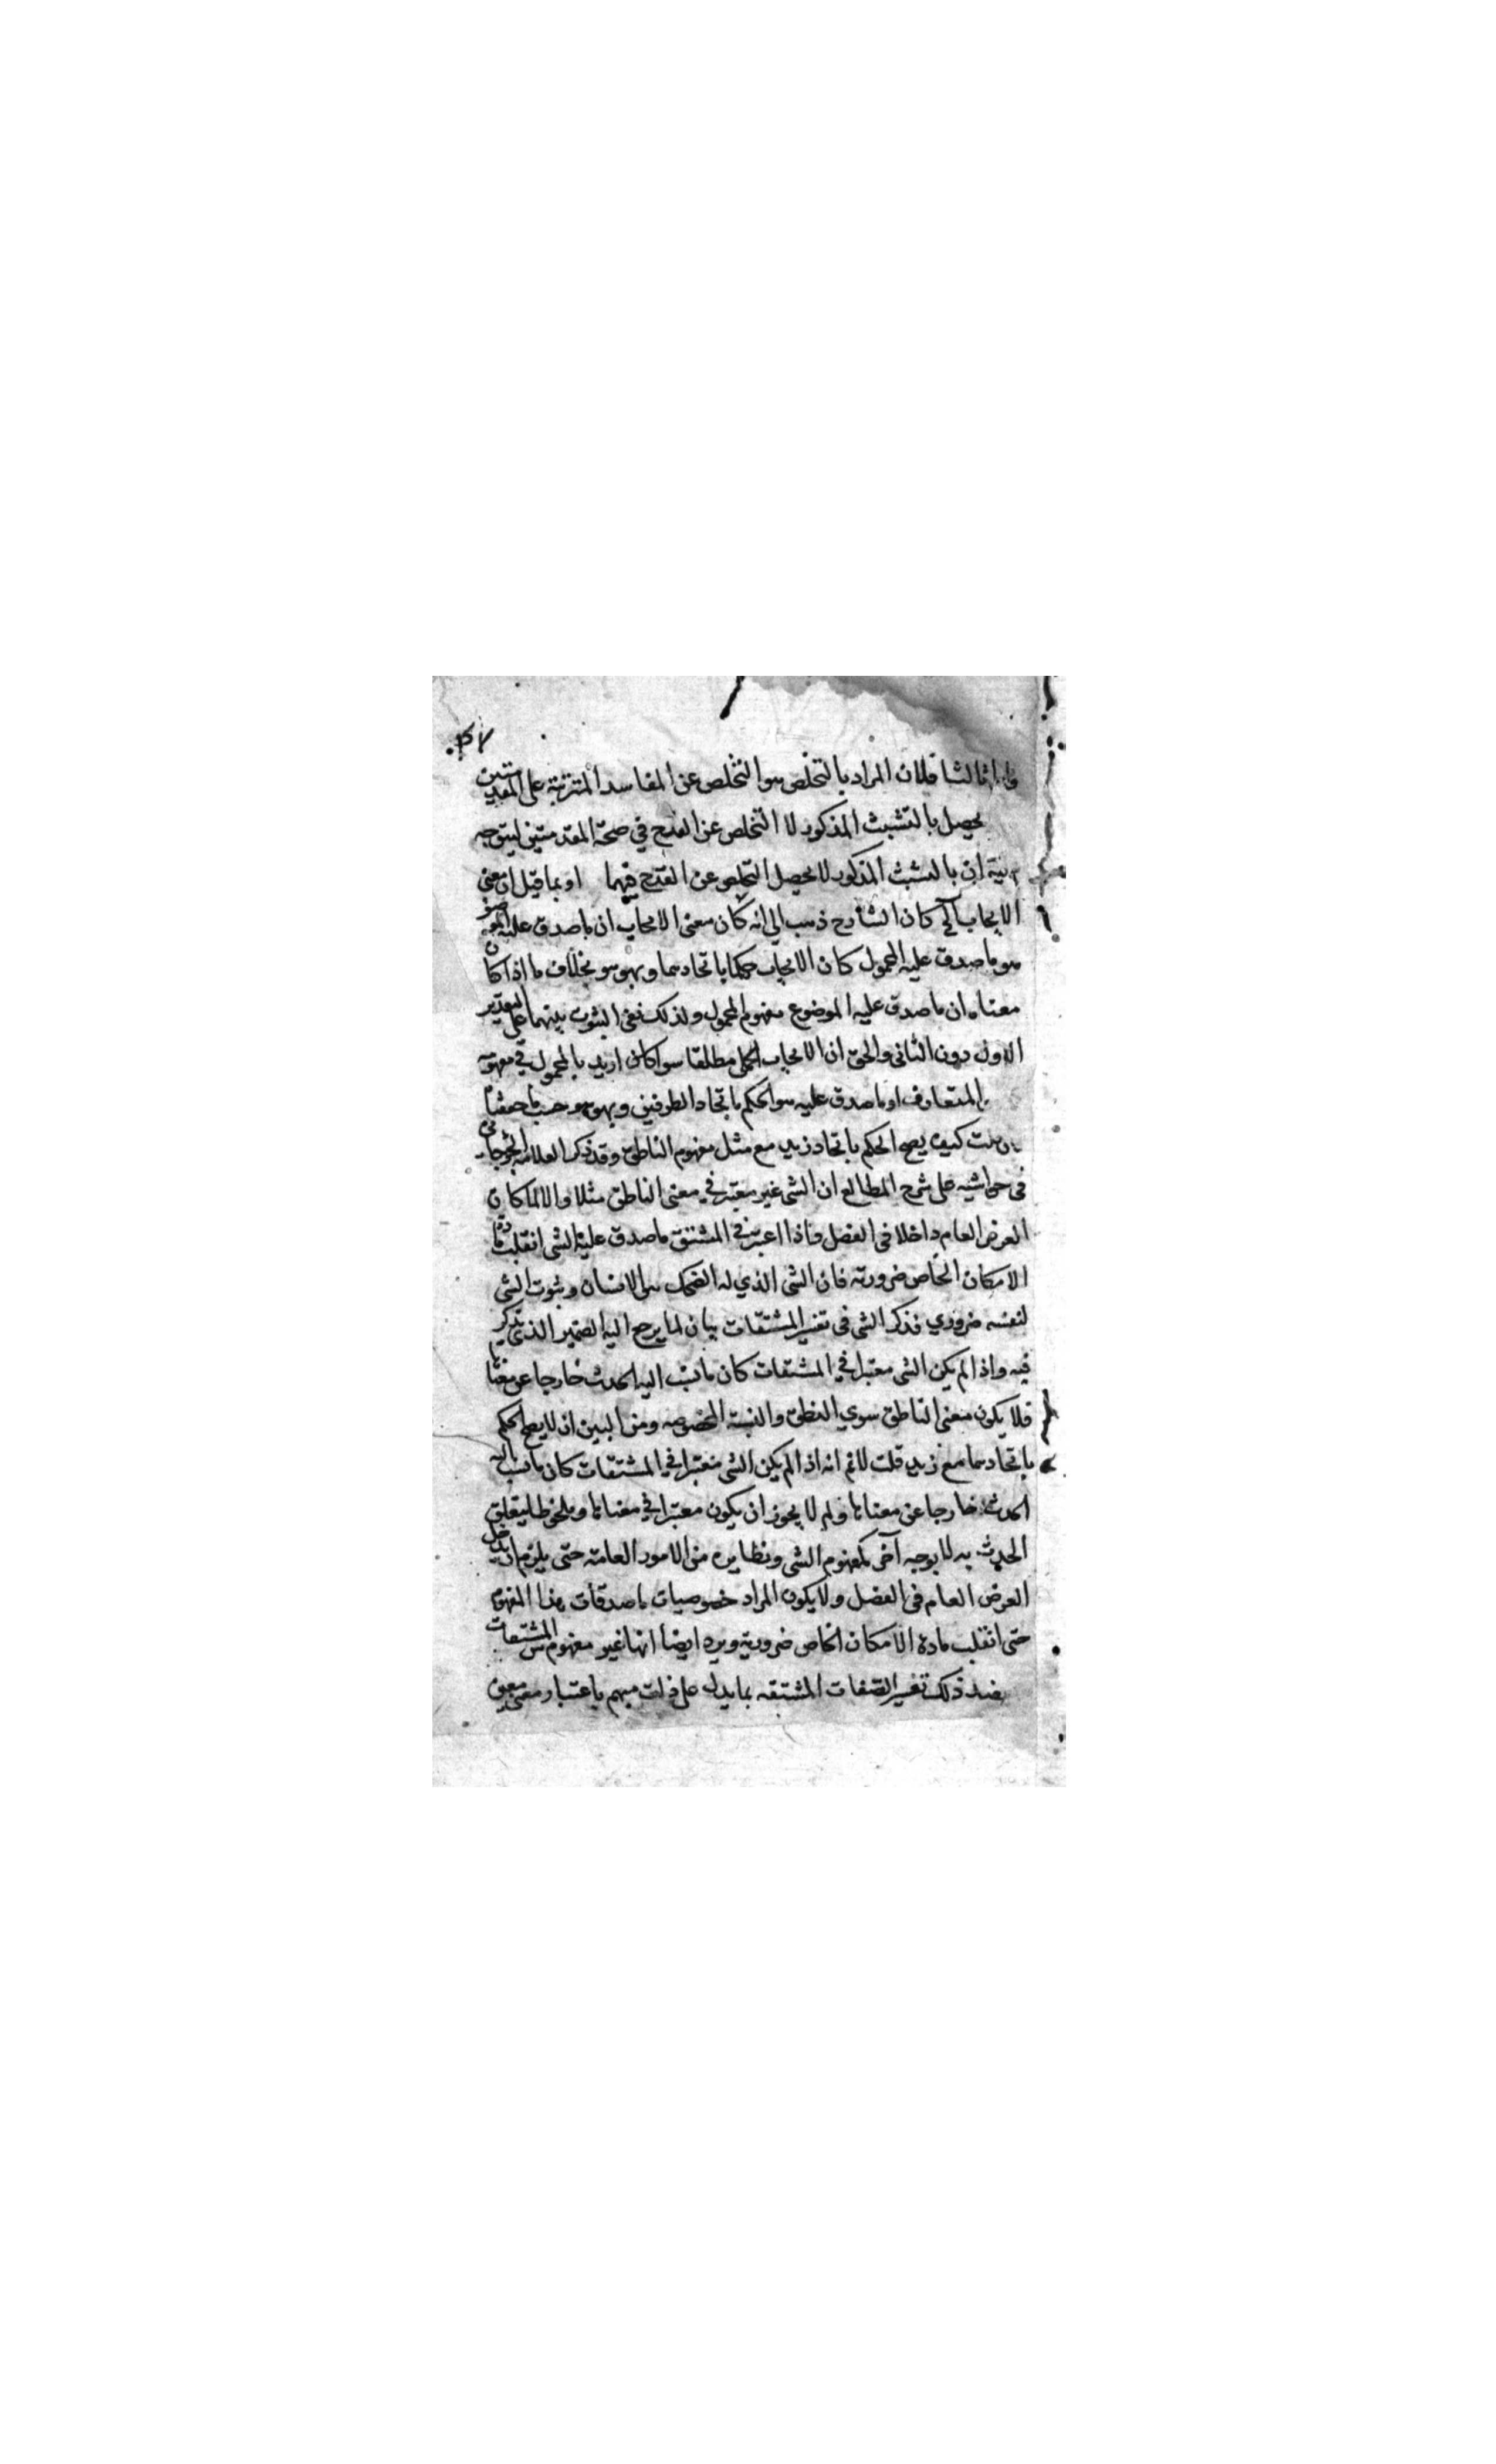 واما ثالثا فلان المراد بالتخلص هو التخلص عن المفاسد المترتبة على المقدمتين
يحصل بالتشبث المذكور لا التخلص عن القدح في صحة المقدمتين ليتوجه
ان بالتشبث المذكور لا يحصل التخلص عن القدح فيهما او بما قيل ان معنى
الايجاب آه كان الشارح ذهب الى انه كان معنى الايجاب ان ما صدق عليه الموضوع
هو ما صدق عليه المحمول كان الايجاب حكما باتحادهما وبهو هو بخلاف ما اذا كان
معناه ان ما صدق عليه الموضوع مفهوم المحمول ولذلك نفى الثبوت بينهما على التقدير
الاول دون الثانى والحق ان الايجاب الحملى مطلقا سوا كان اريد بالمحمول مفهومه
المتعارف او ما صدق عليه هو الحكم باتحاد الطرفين وبهو هو حسب ما حققنا
قلت كيف يصح الحكم باتحاد زيد مع مثل مفهوم الناطق وقد ذكر العلامة الجرجانى
فى حواشيه على شرح المطالع ان الشى غير معتبر في معنى الناطق مثلا والا لما كان
العرض العام داخلا فى الفصل واذا اعتبر في المشتق ما صدق عليه الشى انقلبت مادة
الامكان الخاص ضرورته فان الشى الذي له الضحك هو الانسان وثبوت الشى
لنفسه ضروري فذكر الشى فى تفسير المشتقات بيان لما يرجع اليه الضمير الذى يذكر
فيه واذا لم يكن الشى معتبرا في المشتقات كان ما نسب اليه الحدث خارجا عن معناها
فلا يكون معنى الناطق سوي النطق والنسبة المخصوصه ومن البين ان لا يصح الحكم
باتحادهما مع زيد قلت لانم انه اذا لم يكن الشى معتبرا في المشتقات كان ما نسب اليه
الحدث خارجا عن معناها ولم لا يجوز ان يكون معتبرا في معناها وملحوظا ليتعلق
الحدث به لا بوجه آخر كمفهوم الشى ونظايره من الامور العامة حتى يلزم ان يدخل
العرض العام فى الفصل ولا يكون المراد خصوصيات ما صدقات هذا المفهوم
حتى انقلب مادة الامكان الخاص ضرورية ويرد ايضا انها غير مفهوم من المشتقات
ذلك تفسير الصفات المشتقه بما يدل على ذات مبهم باعتبار معنى معين